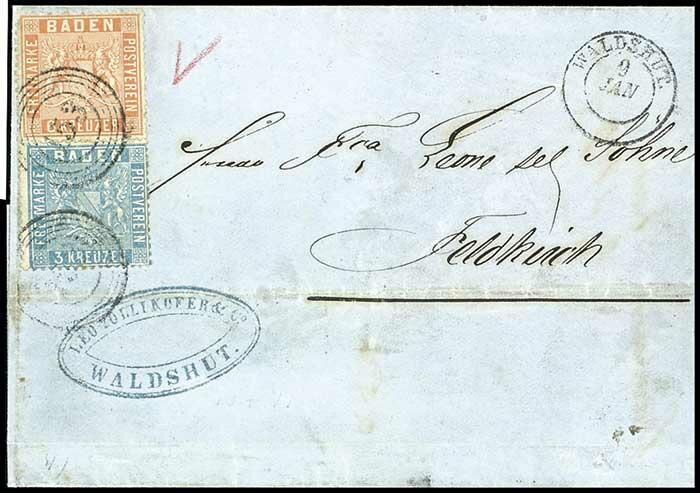 BADEN
FREIMARKE
POSTVEREIN
6 KREUZER
BADEN
FREIMARKE
POSTVEREIN
3 KREUZER
WALDSHUT.
9
JAN
Fra Leone sel Söhne
Feldkirch
LEO ZOLLIKOFER & Co
WALDSHUT.